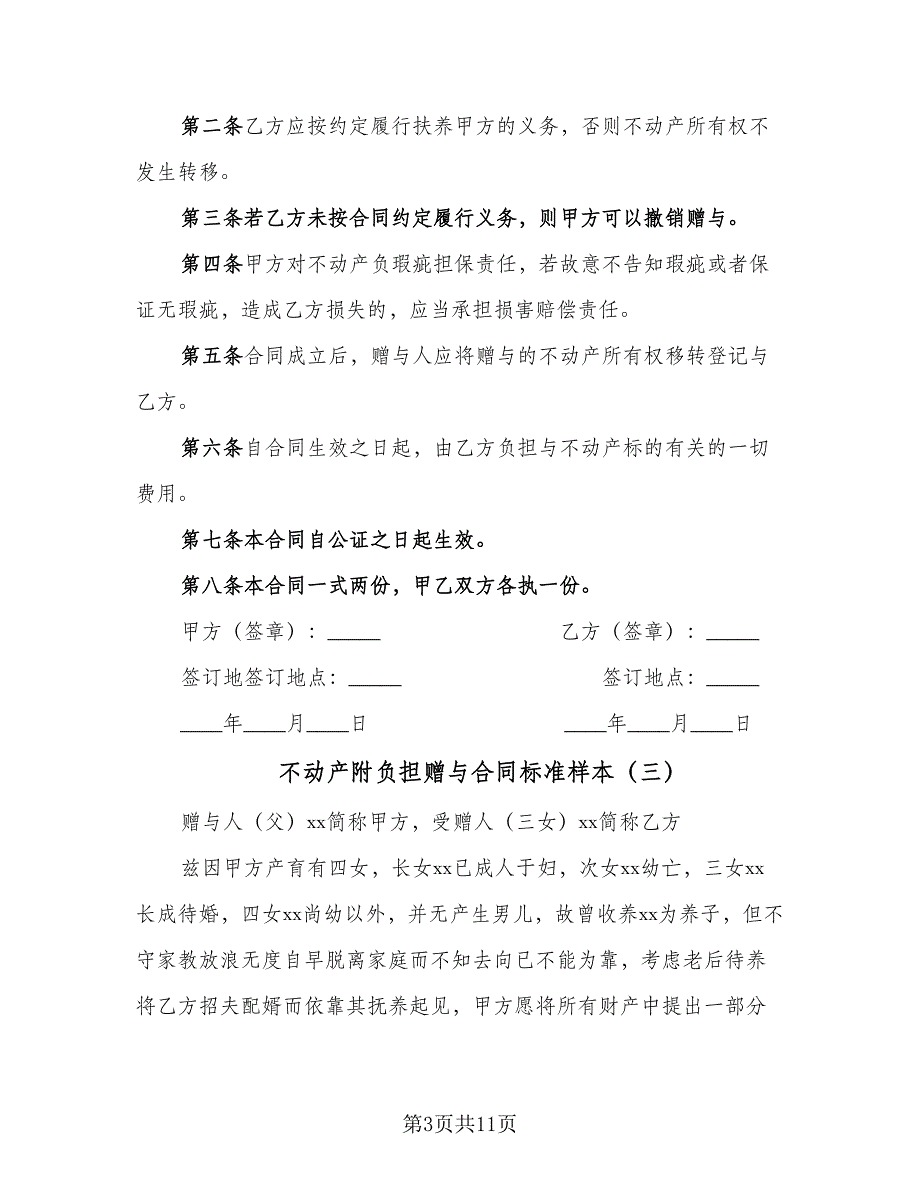 第二条乙方应按约定履行扶养甲方的义务，否则不动产所有权不
发生转移。
第三条若乙方未按合同约定履行义务，则甲方可以撤销赠与。
第四条甲方对不动产负瑕疵担保责任，若故意不告知瑕疵或者保
证无瑕疵，造成乙方损失的，应当承担损害赔偿责任。
第五条合同成立后，赠与人应将赠与的不动产所有权移转登记与
乙方。
第六条自合同生效之日起，由乙方负担与不动产标的有关的一切
费用。
第七条本合同自公证之日起生效。
第八条本合同一式两份，甲乙双方各执一份。
甲方（签章）：_____ 乙方（签章）：_____
签订地签订地点：_____ 签订地点：_____
____年____月____日 ____年____月____日
不动产附负担赠与合同标准样本（三）
赠与人（父）xx简称甲方，受赠人（三女）xx简称乙方
兹因甲方产育有四女，长女xx已成人于妇，次女xx幼亡，三女xx
长成待婚，四女xx尚幼以外，并无产生男儿，故曾收养xx为养子，但不
守家教放浪无度自早脱离家庭而不知去向已不能为靠，考虑老后待养
将乙方招夫配婿而依靠其抚养起见，甲方愿将所有财产中提出一部分
第3页共11页